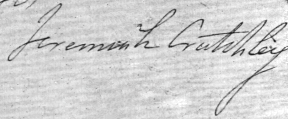 Jeremiah Crutchley